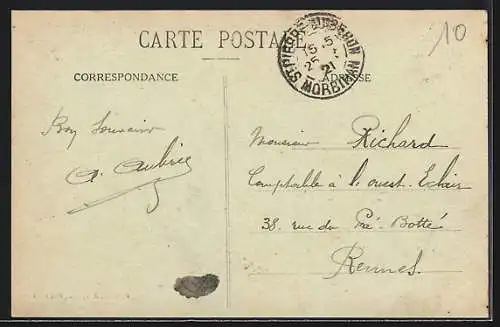 CARTE POSTALE
ST PIERRE-QUIBERON
15-5
25 - 7
21
MORBIHAN
10
CORRESPONDANCE
ADRESSE
Bon Souvenir
A. Aubrée
Monsieur Richard
Comptable à l'ouest-Eclair
38. rue du Pré-Botté
Rennes.